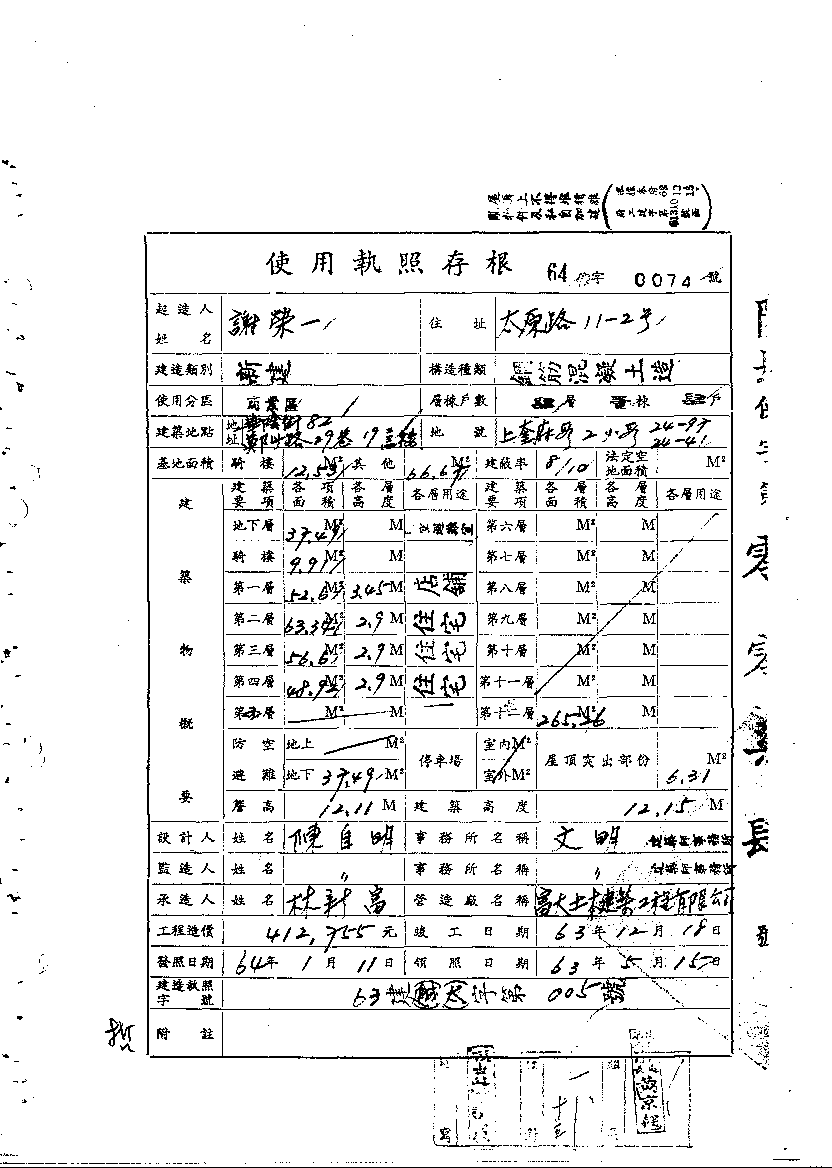 使用執照存根 64 字 0074 號
起造人姓名 謝榮一 住址 太原路11-2号
建造類別 新建 構造種類 鋼筋混凝土造
使用分區 商業區 層棟戶數 層 棟 戶
建築地點 地址 華陰街82 地號 24-97
鄭州路29巷19 24-41
基地面積 騎樓 M² 其他 66.67 M² 建蔽率 8/10 法定空地面積 M²
建築物概要 建築要項 各項面積 各層高度 各層用途 建築要項 各層面積 各層高度 各層用途
地下層 37.49 M² M 第六層 M² M
騎樓 9.91 M² 第七層 M² M
第一層 52.67 M² 3.45 M 店舖 第八層 M² M
第二層 63.34 M² 2.9 M 住宅 第九層 M² M
第三層 56.67 M² 2.9 M 住宅 第十層 M² M
第四層 48.92 M² 2.9 M 住宅 第十一層 M² M
第五層 M² M 第十二層 265.26 M
防空避難 地上 M² 停車場 室內 M² 屋頂突出部份 M²
地下 37.49 M² 室外 M² 6.31
簷高 12.11 M 建築高度 12.15 M
設計人 姓名 陳自明 事務所名稱 文明 建築師事務所
監造人 姓名 〃 事務所名稱 〃 建築師事務所
承造人 姓名 林新富 營造廠名稱 富大土木建築工程有限公司
工程造價 412,755 元 竣工日期 63年12月18日
發照日期 64年1月11日 領照日期 63年5月15日
建造執照字號 63建 字第005號
附註